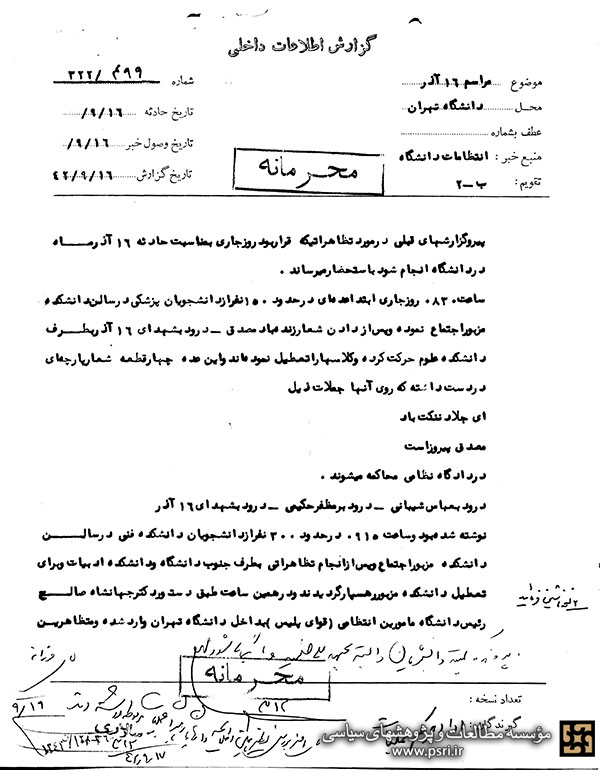 گزارش اطلاعات داخلی
موضوع : مراسم ۱۶ آذر
شماره ۳۲۲/ ۶۹۹م
محل : دانشگاه تهران
تاریخ حادثه ۹/۱۶/
عطف بشماره
تاریخ وصول خبر ۹/۱۶/
منبع خبر : انتظامات دانشگاه
تاریخ گزارش ۴۲/۹/۱۶
تقویم : ب-۲
محرمانه
پیروگزارشهای قبلی درمورد تظاهراتیکه قراربود روزجاری بمناسبت حادثه ۱۶ آذرماه
در دانشگاه انجام شود باستحضارمیرساند .
ساعت ۰۸۳۰ روزجاری ابتداعده‌ای درحدود ۱۵۰ نفرازدانشجویان پزشکی درسالن دانشکده
مزبوراجتماع نموده وپس از دادن شعارزنده‌باد مصدق – درود بشهدای ۱۶ آذربطرف
دانشکده علوم حرکت کرده وکلاسهاراتعطیل نموده‌اند واین عده چهارقطعه شعارپارچه‌ای
دردست داشته که روی آنها جملات ذیل
ای جلاد ننگت باد
مصدق پیروزاست
دردادگاه نظامی محاکمه میشوند .
درود بعباس شیبانی – درود برمظفرحکیمی – درود بشهدای ۱۶ آذر
نوشته شده‌بود وساعت ۰۹۱۵ درحدود ۳۰۰ نفرازدانشجویان دانشکده فنی درسالن
دانشکده مزبوراجتماع وپس ازانجام تظاهراتی بطرف جنوب دانشگاه ودانشکده ادبیات وبرای
تعطیل دانشکده مزبوررهسپارگردیدند ودرهمین ساعت طبق دستوردکترجهانشاه صالح
رئیس دانشگاه مامورین انتظامی (قوای پلیس) بداخل دانشگاه تهران وارد شده ومتظاهرین
محرمانه
تعداد نسخه :
۹/۱۶
مؤسسه مطالعات و پژوهشهای سیاسی
www.psri.ir